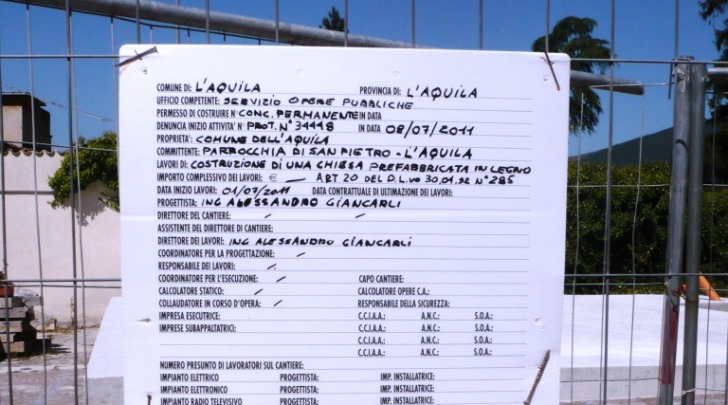 COMUNE DI: L'AQUILA PROVINCIA DI: L'AQUILA
UFFICIO COMPETENTE: SERVIZIO OPERE PUBBLICHE
PERMESSO DI COSTRUIRE N° CONC. PERMANENTE IN DATA
DENUNCIA INIZIO ATTIVITA' N° PROT. N° 34448 IN DATA 08/07/2011
PROPRIETA': COMUNE DELL'AQUILA
COMMITTENTE: PARROCCHIA DI SAN PIETRO - L'AQUILA
LAVORI DI: COSTRUZIONE DI UNA CHIESA PREFABBRICATA IN LEGNO
IMPORTO COMPLESSIVO DEI LAVORI: € — ART 20 DEL D.L.vo 30.04.92 N° 285
DATA INIZIO LAVORI: 01/07/2011 DATA CONTRATTUALE DI ULTIMAZIONE DEI LAVORI:
PROGETTISTA: ING ALESSANDRO GIANCARLI
DIRETTORE DEL CANTIERE: / /
ASSISTENTE DEL DIRETTORE DI CANTIERE:
DIRETTORE DEI LAVORI: ING ALESSANDRO GIANCARLI
COORDINATORE PER LA PROGETTAZIONE: /
RESPONSABILE DEI LAVORI: /
COORDINATORE PER L'ESECUZIONE: / CAPO CANTIERE:
CALCOLATORE STATICO: / CALCOLATORE OPERE C.A.:
COLLAUDATORE IN CORSO D'OPERA: / RESPONSABILE DELLA SICUREZZA:
IMPRESA ESECUTRICE: C.C.I.A.A.: A.N.C.: S.O.A.:
IMPRESE SUBAPPALTATRICI: C.C.I.A.A.: A.N.C.: S.O.A.:
C.C.I.A.A.: A.N.C.: S.O.A.:
C.C.I.A.A.: A.N.C.: S.O.A.:
NUMERO PRESUNTO DI LAVORATORI SUL CANTIERE:
IMPIANTO ELETTRICO PROGETTISTA: IMP. INSTALLATRICE:
IMPIANTO ELETTRONICO PROGETTISTA: IMP. INSTALLATRICE:
IMPIANTO RADIO TELEVISIVO PROGETTISTA: IMP. INSTALLATRICE: